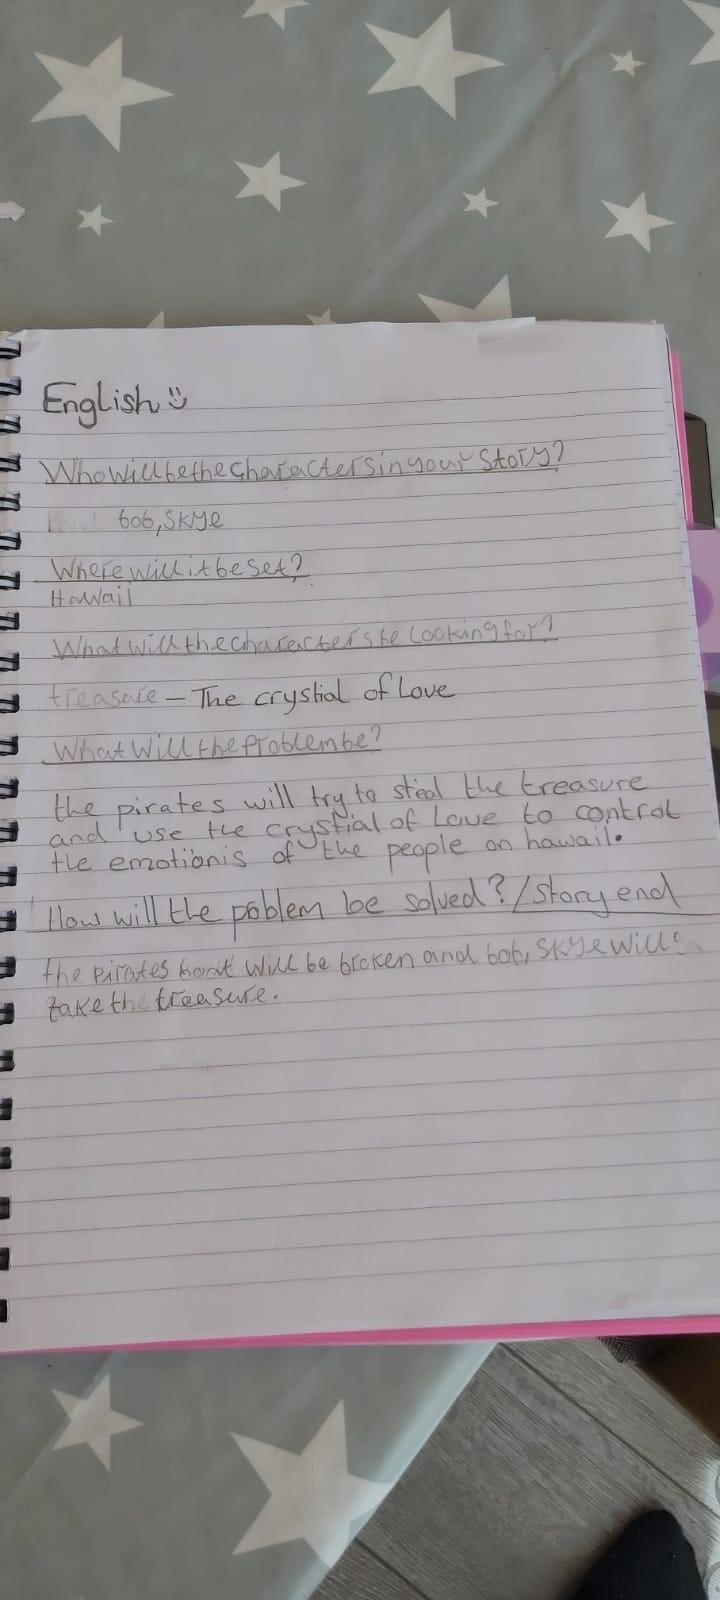 English
Who will be the characters in your story?
bob, Skye
Where will it be set?
Hawaii
What will the characters be looking for?
treasure - The crystial of Love
What will the problem be?
the pirates will try to steal the treasure
and use the crystial of Love to control
the emotionis of the people on hawaii.
How will the poblem be solved? / Story end
the pirates boat will be broken and bob, Skye will
take the treasure.